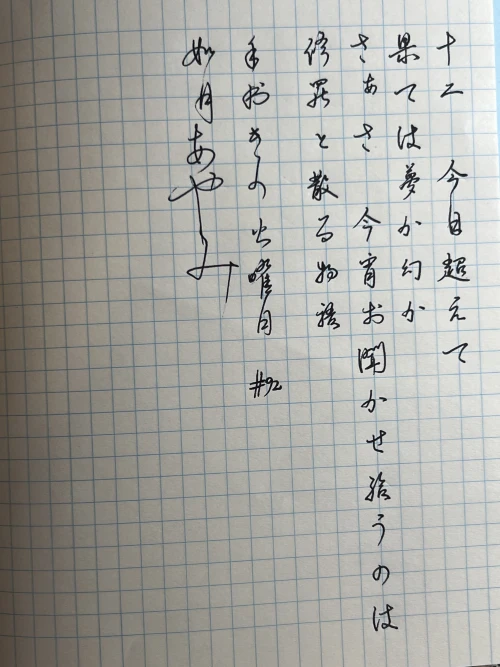 十二 今日超えて
果ては夢か幻か
さあさ 今宵お聞かせ給うのは
修羅と散る物語
手書きの火曜日 #92
如月あやみ